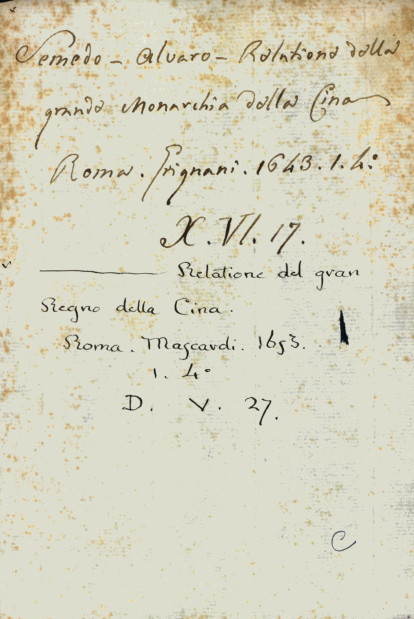 Semedo - Alvaro - Relatione della
grande Monarchia della Cina
Roma. Grignani. 1643. 1. 4.°
X. VI. 17.
——— Relatione del gran
Regno della Cina.
Roma. Mascardi. 1653.
1. 4°
D. V. 27.
C